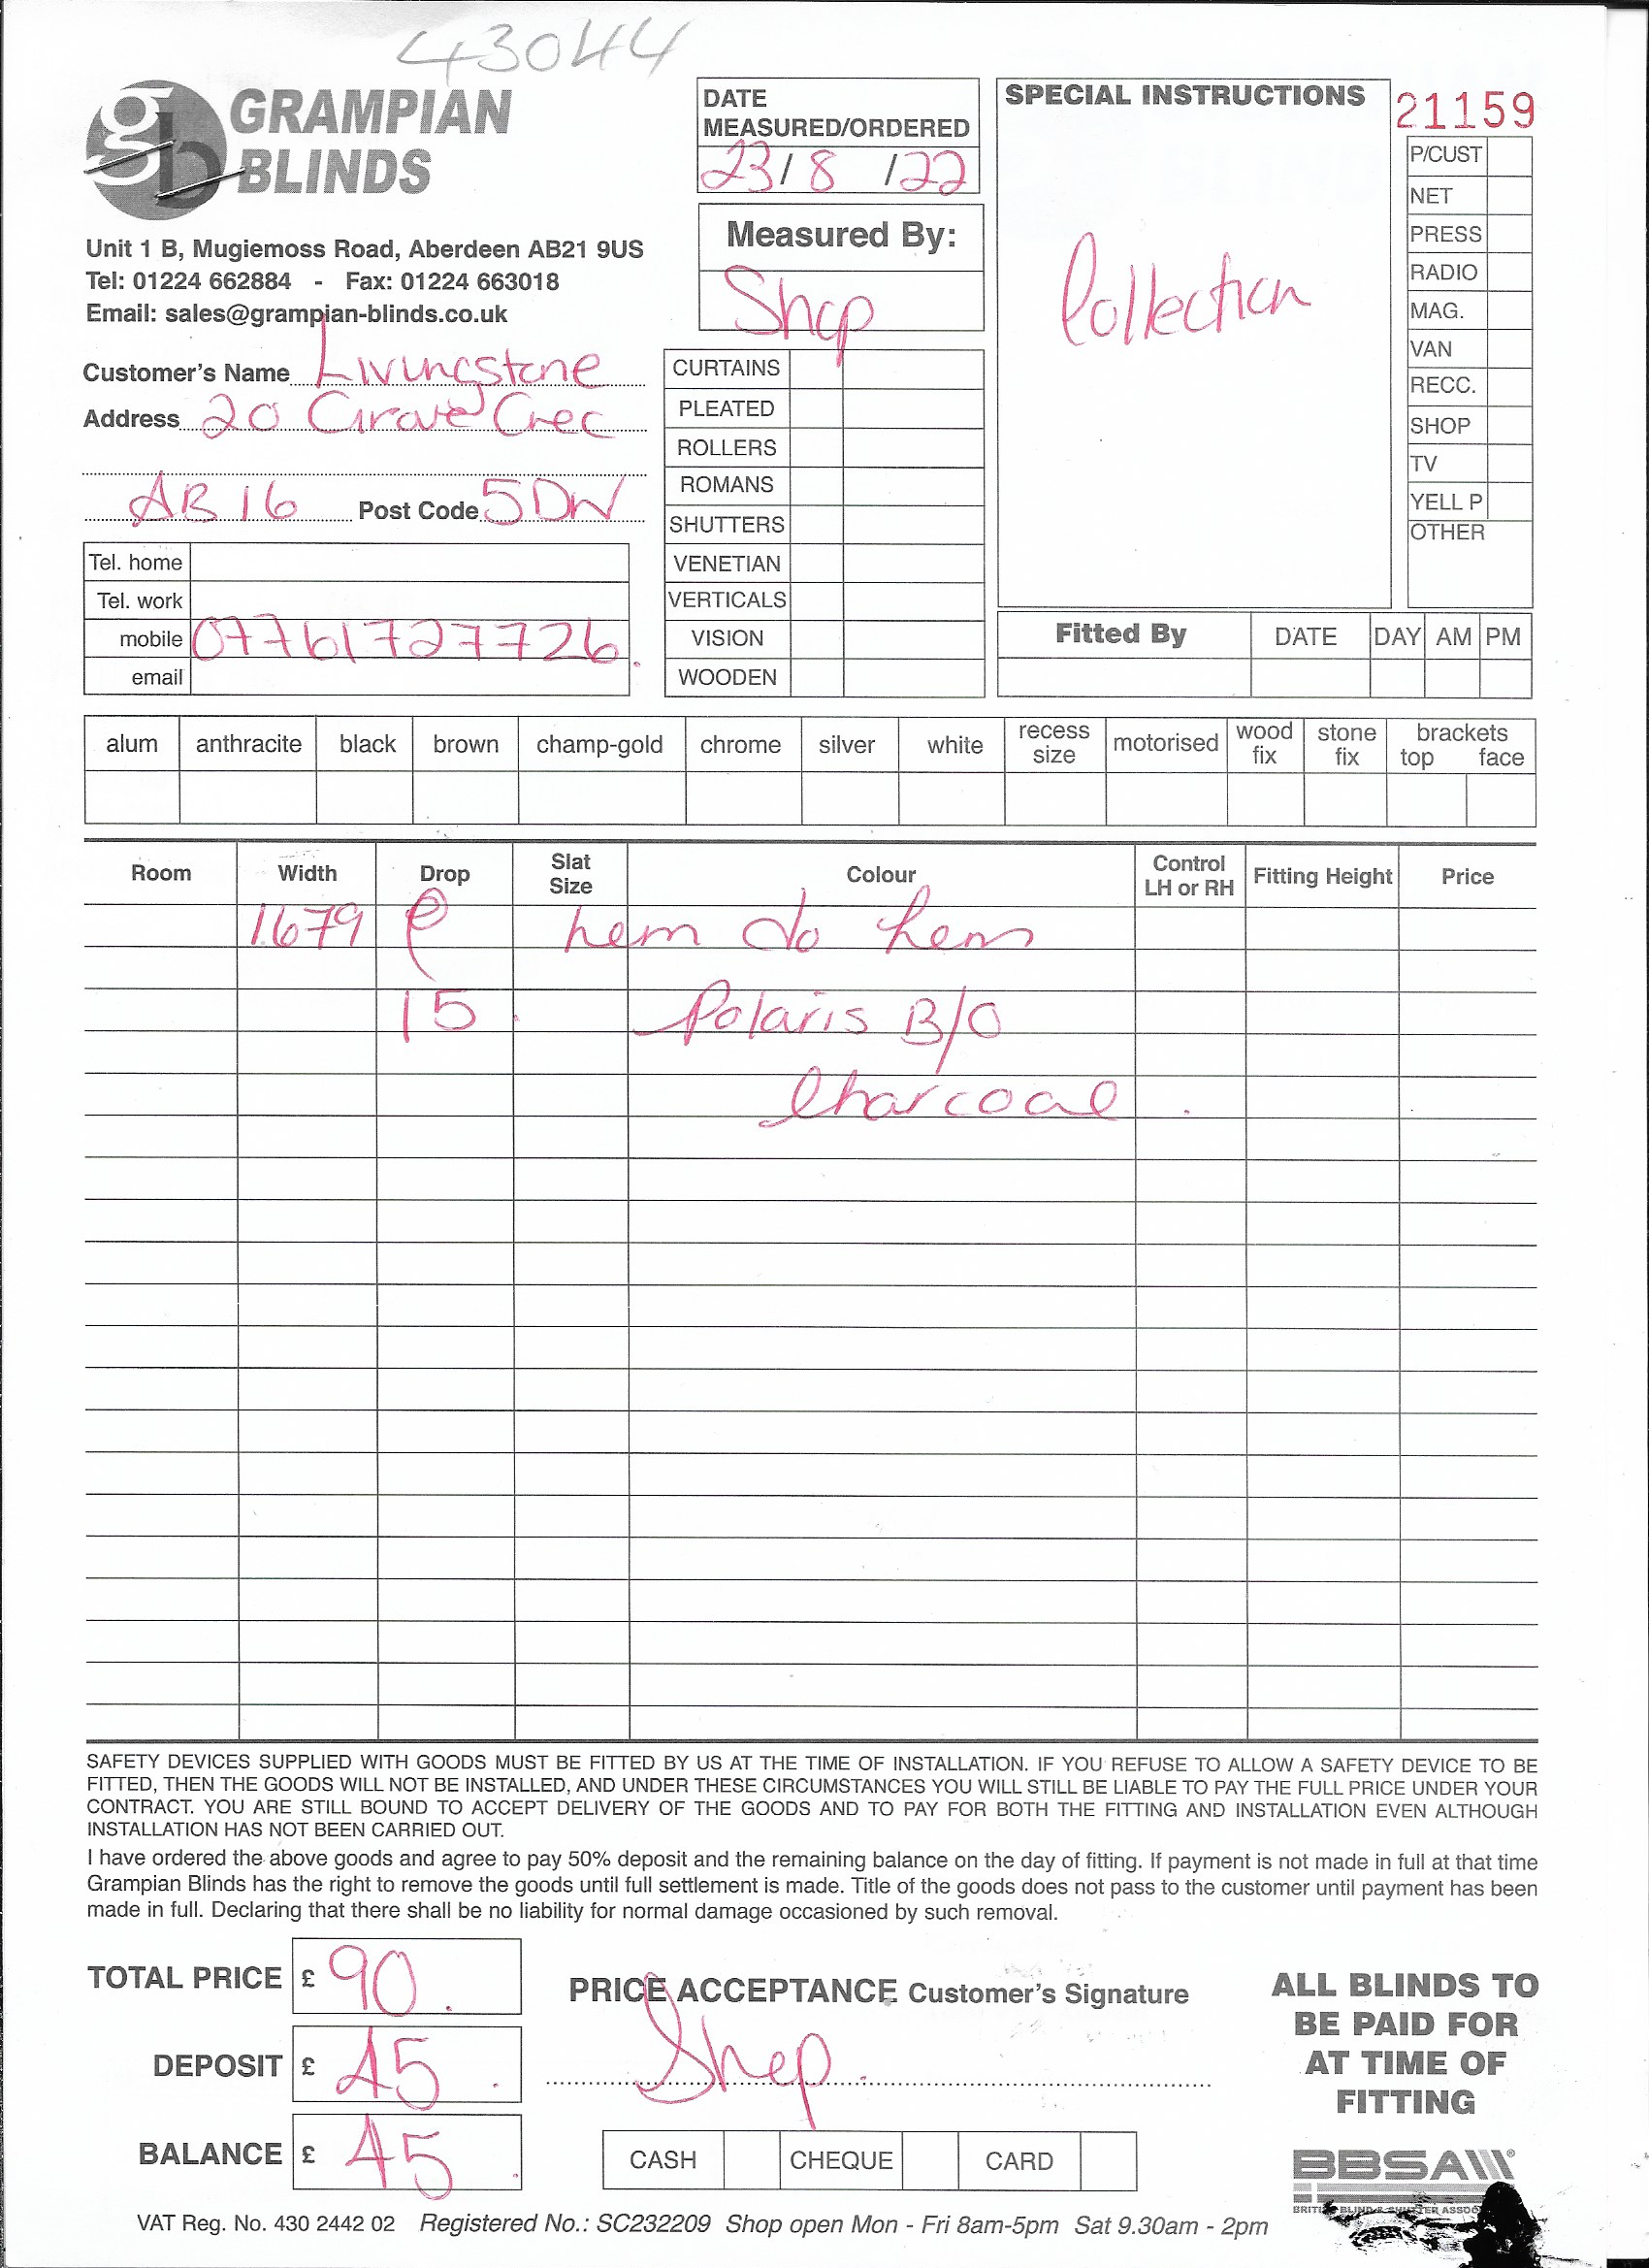 43044
GRAMPIAN
BLINDS
Unit 1 B, Mugiemoss Road, Aberdeen AB21 9US
Tel: 01224 662884 - Fax: 01224 663018
Email: sales@grampian-blinds.co.uk
Customer's Name Livingstone
Address 20 Grove Crec
AB16 Post Code 5DW
Tel. home
Tel. work
mobile 07761727726.
email
DATE
MEASURED/ORDERED
23/8/22
Measured By:
Shop
CURTAINS
PLEATED
ROLLERS
ROMANS
SHUTTERS
VENETIAN
VERTICALS
VISION
WOODEN
SPECIAL INSTRUCTIONS
Collection
21159
P/CUST
NET
PRESS
RADIO
MAG.
VAN
RECC.
SHOP
TV
YELL P
OTHER
Fitted By DATE DAY AM PM
alum anthracite black brown champ-gold chrome silver white recess size motorised wood fix stone fix brackets top face
Room Width Drop Slat Size Colour Control LH or RH Fitting Height Price
1679 hem to hem
15 Polaris B/O
Charcoal
SAFETY DEVICES SUPPLIED WITH GOODS MUST BE FITTED BY US AT THE TIME OF INSTALLATION. IF YOU REFUSE TO ALLOW A SAFETY DEVICE TO BE
FITTED, THEN THE GOODS WILL NOT BE INSTALLED, AND UNDER THESE CIRCUMSTANCES YOU WILL STILL BE LIABLE TO PAY THE FULL PRICE UNDER YOUR
CONTRACT. YOU ARE STILL BOUND TO ACCEPT DELIVERY OF THE GOODS AND TO PAY FOR BOTH THE FITTING AND INSTALLATION EVEN ALTHOUGH
INSTALLATION HAS NOT BEEN CARRIED OUT.
I have ordered the above goods and agree to pay 50% deposit and the remaining balance on the day of fitting. If payment is not made in full at that time
Grampian Blinds has the right to remove the goods until full settlement is made. Title of the goods does not pass to the customer until payment has been
made in full. Declaring that there shall be no liability for normal damage occasioned by such removal.
TOTAL PRICE £ 90.
DEPOSIT £ 45.
BALANCE £ 45.
PRICE ACCEPTANCE Customer's Signature
Shop.
CASH CHEQUE CARD
ALL BLINDS TO
BE PAID FOR
AT TIME OF
FITTING
BBSA
VAT Reg. No. 430 2442 02 Registered No.: SC232209 Shop open Mon - Fri 8am-5pm Sat 9.30am - 2pm